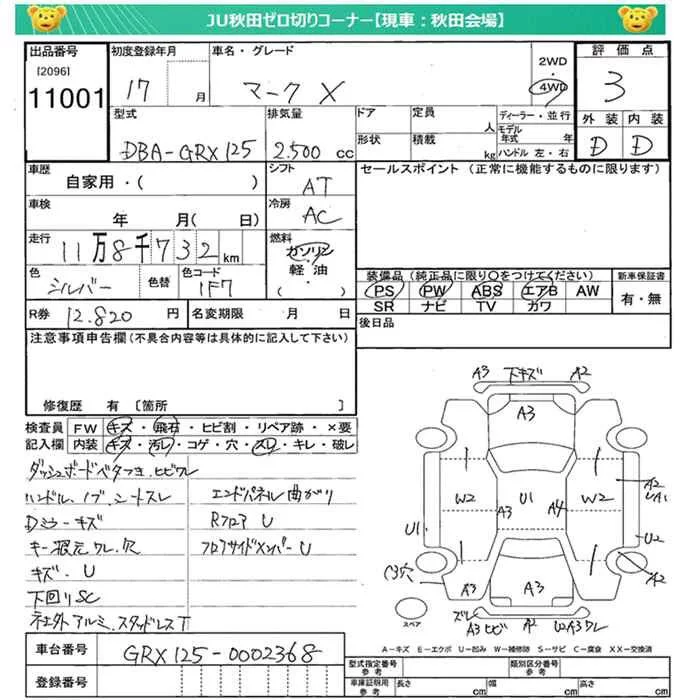 JU秋田ゼロ切りコーナー【現車：秋田会場】
出品番号
[2096]
11001
初度登録年月
17 月
車名・グレード
マークX
2WD
・
4WD
評価点
3
外装 内装
D D
型式
DBA-GRX125
排気量
2.500 cc
ドア
形状
定員 人
積載 kg
ディーラー・並行
モデル年式 年
ハンドル 左・右
車歴
自家用・( )
シフト
AT
セールスポイント (正常に機能するものに限ります)
車検
年 月( 日)
冷房
AC
走行
11万8千732km
燃料
ガソリン
軽油・
( )
色
シルバー
色替
色コード
1F7
装備品 (純正品に限り○をつけてください)
PS PW ABS エアB AW
SR ナビ TV カワ
新車保証書
有・無
R券 12.820 円
名変期限 月 日
後日品
注意事項申告欄(不具合内容等は具体的に記入して下さい)
修復歴 有 〔箇所 〕
検査員記入欄
FW キズ・飛石・ヒビ割・リペア跡・×要
内装 キズ・汚レ・コゲ・穴・スレ・キレ・破レ
ダッシュボードベタつき、ヒビワレ
ハンドル、ノブ、シートスレ
Dミラーキズ
キー根元ワレ、穴
キズ、U
下回りSC
社外アルミ、スタッドレスT
エンドパネル曲がり
Rフロア U
フロアサイドメンバー U
A3 下キズ A2
A3
W2 A3 U1 A4 W2
A2
UA1
U1
U2
A2
A3 A3
スレ
A3ヒビ A2 U2A3ワレ
スペア
A-キズ E-エクボ U-凹み W-補修跡 S-サビ C-腐食 XX-交換済
車台番号
GRX125-0002368
登録番号
型式指定番号
参考
類別区分番号
参考
車庫証明用
参考
長さ cm
幅 cm
高さ cm